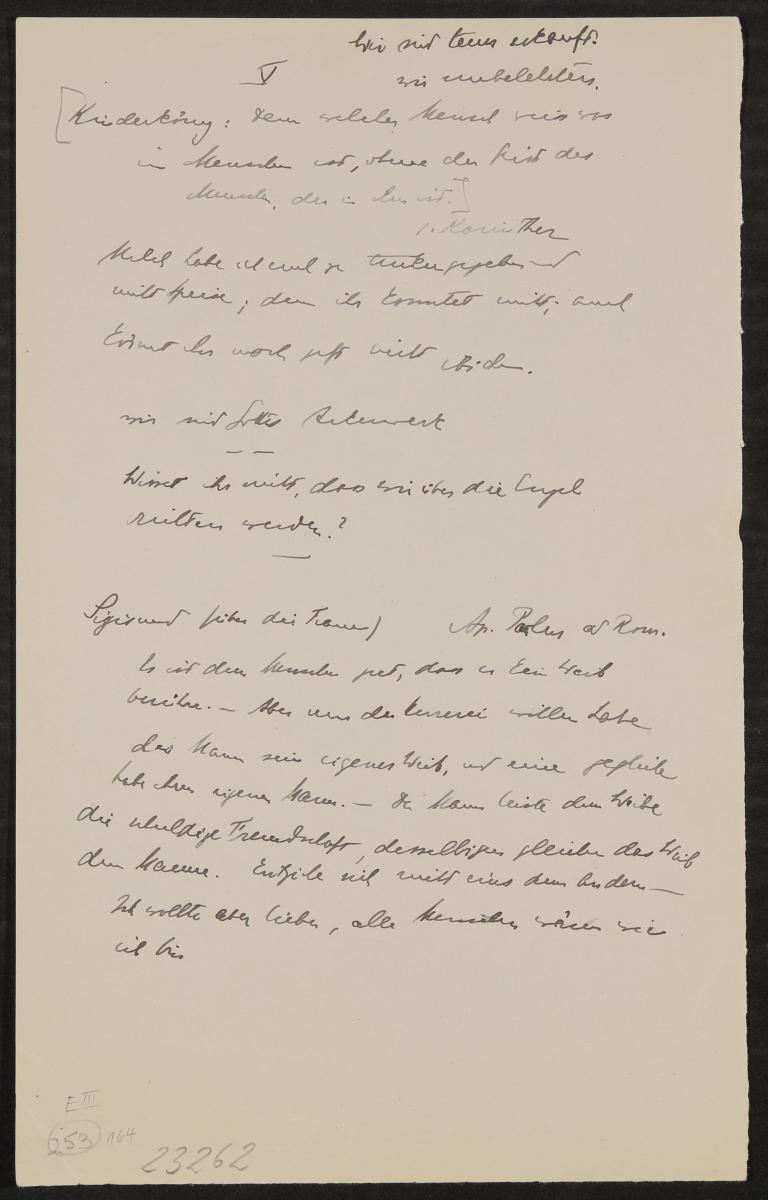 Wir sind teuer erkauft.
V
wir unbelehrten.
[Kinderkönig: Denn welcher Mensch weis was
im Menschen ist, ohne der Geist des
Menschen, der in ihm ist.]
1. Korinther
Milch habe ich euch zu trinken gegeben und
nicht Speise; denn ihr konntet nicht; auch
könnet ihr noch jetzt nicht
wir sind Gottes Ackerwerk
Wisset ihr nicht, dass wir über die Engel
richten werden?
Sigismund (über die Frauen) Ap. Paulus ad Rom.
Es ist dem Menschen gut, dass er kein Weib
berühre. — Aber um der Hurerei willen habe
der Mann sein eigenes Weib, und eine jegliche
habe ihren eigenen Mann. — Der Mann leiste dem Weibe
die schuldige Freundschaft, desselbigen gleichen das Weib
dem Manne. Entziehe sich nicht eins dem andern —
Ich wollte aber lieber, alle Menschen wären wie
ich bin
E III
253 164
23262